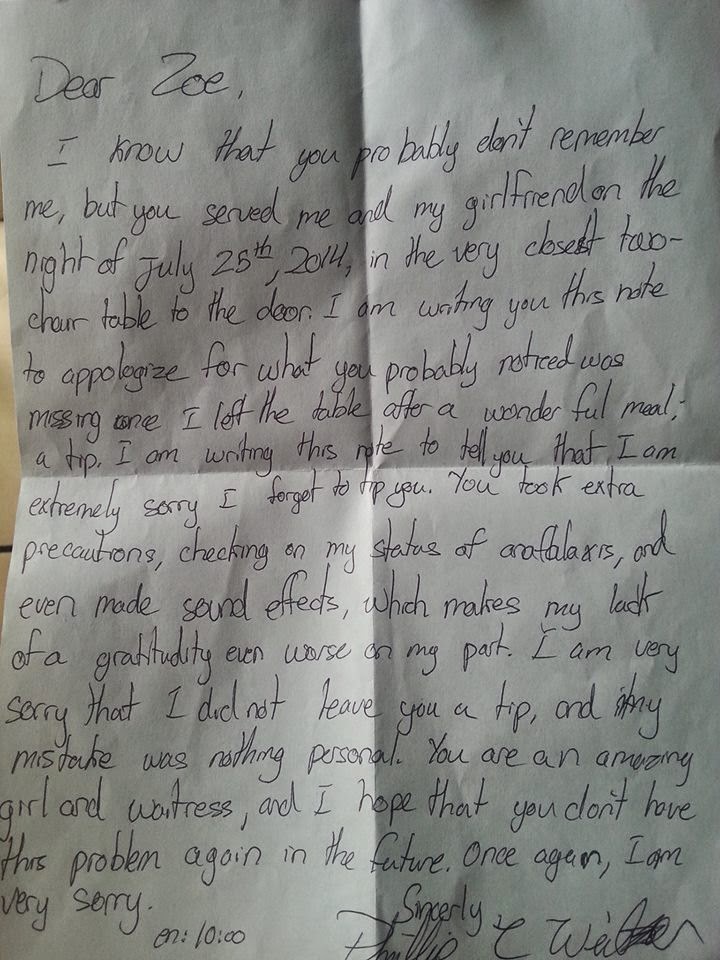 Dear Zoe,
I know that you probably don't remember
me, but you served me and my girlfriend on the
night of July 25th, 2014, in the very closest two-
chair table to the door. I am writing you this note
to appologize for what you probably noticed was
missing once I left the table after a wonderful meal;
a tip. I am writing this note to tell you that I am
extremely sorry I forget to tip you. You took extra
precautions, checking on my status of anaftalaxis, and
even made sound effects, which makes my lack
of a gratitudity even worse on my part. I am very
sorry that I did not leave you a tip, and my
mistake was nothing personal. You are an amazing
girl and waitress, and I hope that you don't have
this problem again in the future. Once again, I am
very sorry.
Sincerly
en: 10:00
Phillip